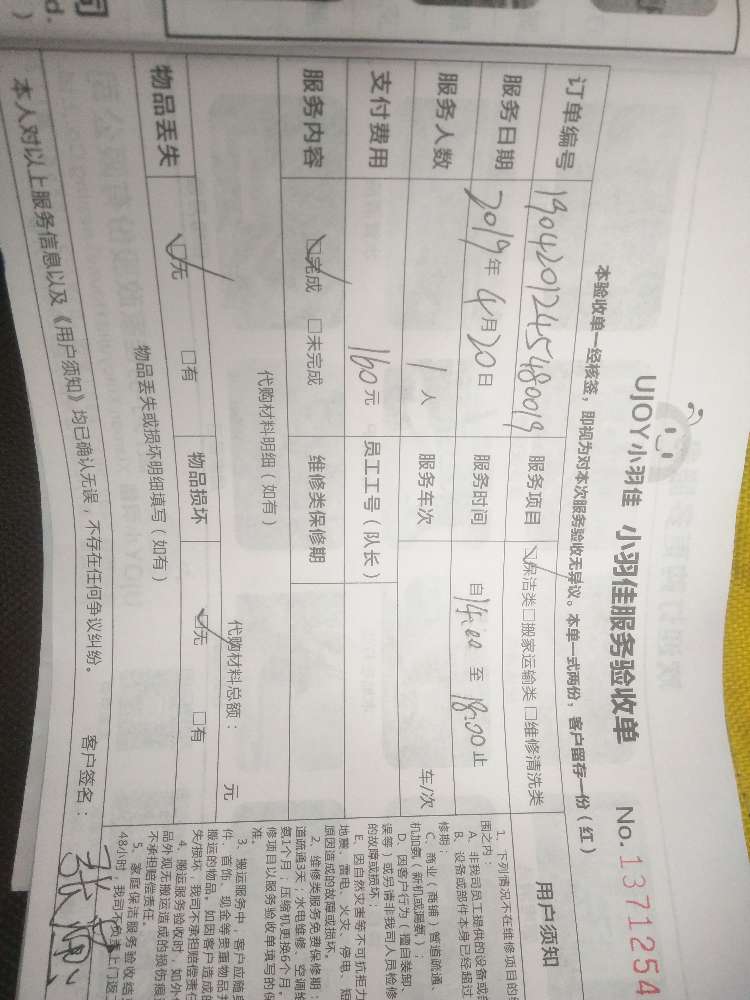 UJOY小羽佳 小羽佳服务验收单 No. 1371254
本验收单一经核签，即视为对本次服务验收无异议。本单一式两份，客户留存一份（红）
订单编号 1904201245480019 服务项目 保洁类□搬家运输类□维修清洗类
服务日期 2019年4月20日 服务时间 自14:00至18:00止
服务人数 1人 服务车次 车/次
支付费用 160元 员工工号（队长）
服务内容 □完成 □未完成 维修类保修期
代购材料明细（如有）
代购材料总额： 元
物品丢失 □无 □有 物品损坏 □无 □有
物品丢失或损坏明细填写（如有）
本人对以上服务信息以及《用户须知》均已确认无误，不存在任何争议纠纷。 客户签名：
用户须知
1、下列情况不在维修项目的
围之内：
A、非我司员工提供的设备或
B、设备或部件本身已经超过
修期；
C、商业（商铺）管道疏通、
机加氨（新机或漏氨）；
D、因客户行为（擅自装卸、
误等）或另请非我司人员检修
的故障或损坏；
E、因自然灾害等不可抗拒力
地震、雷电、火灾、停电、短
原因造成的故障或损坏。
2、维修类服务免费保修期：
道疏通3天；水电维修、空调
氨1个月；压缩机更换6个月。
修项目以服务验收单填写的保
准。
3、搬运服务中，客户应随
件、首饰、现金等贵重物品
搬运的物品。如因客户造成的
失/损坏，我司不承担赔偿责任
4、搬运服务验收时，如外
品外观无搬运造成的损伤痕
不承担赔偿责任。
5、家庭保洁服务验收结
48小时，我司不负责上门返工